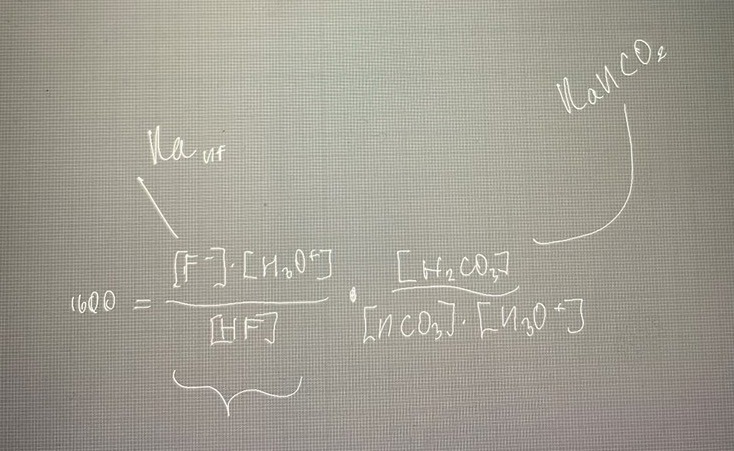 KaHCO₂
Ka HF
1600 = [F⁻]·[H₃O⁺] / [HF] · [H₂CO₃] / [HCO₃]·[H₃O⁺]